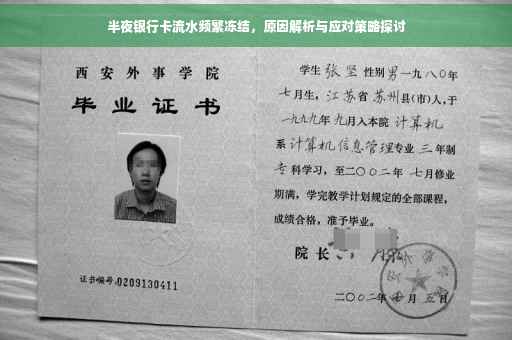 半夜银行卡流水频繁冻结，原因解析与应对策略探讨
西安外事学院
毕业证书
证书编号:0209130411
学生张坚性别男一九八〇年
七月生，江苏省苏州县(市)人，于
一九九九年九月入本院计算机
系计算机信息管理专业三年制
专科学习，至二〇〇二年七月修业
期满，学完教学计划规定的全部课程，
成绩合格，准予毕业。
院长
二〇〇二年 月五日